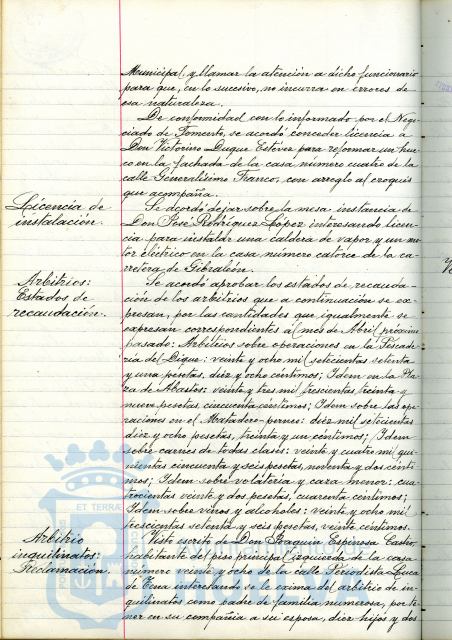 Municipal, y llamar la atención a dicho funcionario
para que, en lo sucesivo, no incurra en errores de
esa naturaleza.
De conformidad con lo informado por el Nego-
ciado de Fomento, se acordó conceder licencia a
Don Victorino Duque Estévez para reformar un hue-
co en la fachada de la casa número cuatro de la
calle Generalísimo Franco, con arreglo al croquis
que acompaña.
Licencia de
instalación.
Se acordó dejar sobre la mesa instancia de
Don José Rodríguez López interesando licen-
cia para instalar una caldera de vapor y un mo-
tor eléctrico en la casa número catorce de la ca-
rretera de Gibraleón.
Arbitrios:
Estados de
recaudación.
Se acordó aprobar los estados de recauda-
ción de los arbitrios que a continuación se ex-
presan, por las cantidades que igualmente se
expresan correspondientes al mes de Abril próximo
pasado: Arbitrios sobre operaciones en la Pescade-
ría del Dique: veinte y ocho mil setecientas setenta
y una pesetas, diez y ocho céntimos; Idem en la Pla-
za de Abastos: veinte y tres mil trescientas treinta y
nueve pesetas, cincuenta céntimos; Idem sobre las ope-
raciones en el Matadero: diez mil setecientas
diez y ocho pesetas, treinta y un céntimos; Idem
sobre carnes de todas clases: veinte y cuatro mil qui-
nientas cincuenta y seis pesetas, noventa y dos cénti-
mos; Idem sobre volatería y caza menor: cua-
trocientas veinte y dos pesetas, cuarenta céntimos;
Idem sobre vinos y alcoholes: veinte y ocho mil
trescientas setenta y seis pesetas, veinte céntimos.
Arbitrio
inquilinatos:
Reclamación.
Visto escrito de Don Joaquín Espinosa Castro,
habitante del piso principal izquierda de la casa
número veinte y ocho de la calle Periodista Luca
de Tena interesando se le exima del arbitrio de in-
quilinatos como padre de familia numerosa, por te-
ner en su compañía a su esposa, diez hijos y dos
ET TERRÆ